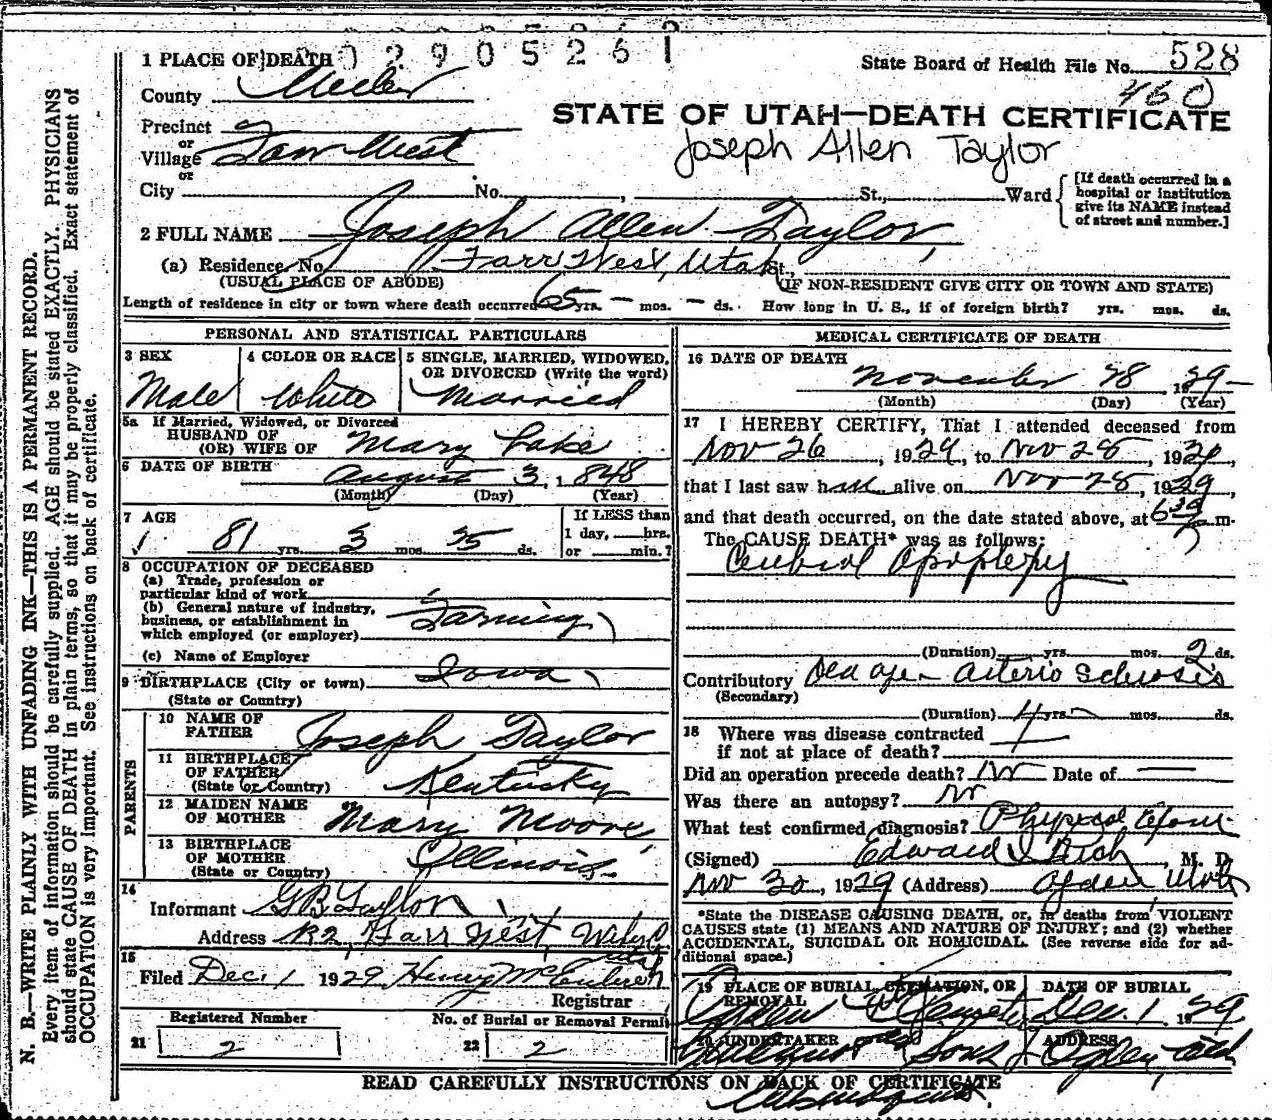 02905261
1 PLACE OF DEATH
State Board of Health File No. 528
460
County Weber
STATE OF UTAH—DEATH CERTIFICATE
Precinct
or
Village Farr West
Joseph Allen Taylor
or
City No. , St., Ward
[If death occurred in a hospital or institution give its NAME instead of street and number.]
2 FULL NAME Joseph Allen Taylor
(a) Residence, No. Farr West, Utah St.,
(USUAL PLACE OF ABODE) (IF NON-RESIDENT GIVE CITY OR TOWN AND STATE)
Length of residence in city or town where death occurred 65 yrs. — mos. — ds. How long in U. S., if of foreign birth? yrs. mos. ds.
PERSONAL AND STATISTICAL PARTICULARS
3 SEX
Male
4 COLOR OR RACE
White
5 SINGLE, MARRIED, WIDOWED,
OR DIVORCED (Write the word)
Married
5a If Married, Widowed, or Divorced
HUSBAND OF
(OR) WIFE OF Mary Lake
6 DATE OF BIRTH August 3, 1848
(Month) (Day) (Year)
7 AGE
81 yrs. 3 mos. 25 ds.
If LESS than
1 day, hrs.
or min.?
8 OCCUPATION OF DECEASED
(a) Trade, profession or
particular kind of work
(b) General nature of industry,
business, or establishment in
which employed (or employer) Farming
(c) Name of Employer
9 BIRTHPLACE (City or town) Iowa
(State or Country)
PARENTS
10 NAME OF
FATHER Joseph Taylor
11 BIRTHPLACE
OF FATHER
(State or Country) Kentucky
12 MAIDEN NAME
OF MOTHER Mary Moore
13 BIRTHPLACE
OF MOTHER
(State or Country) Illinois
14
Informant G B Taylor
Address R 2, Farr West, Weber Co
Utah
15
Filed Dec. 1 1929
Registrar
Registered Number
21 2
No. of Burial or Removal Permit
22 2
MEDICAL CERTIFICATE OF DEATH
16 DATE OF DEATH
November 28, 1929
(Month) (Day) (Year)
17 I HEREBY CERTIFY, That I attended deceased from
Nov 26, 1929, to Nov 28, 1929,
that I last saw him alive on Nov 28, 1929,
and that death occurred, on the date stated above, at 6 30 m.
The CAUSE DEATH* was as follows:
Cerebral Apoplexy
(Duration) yrs. mos. 2 ds.
Contributory Old age - Arterio Sclerosis
(Secondary)
(Duration) 4 yrs. mos. ds.
18 Where was disease contracted
if not at place of death?
Did an operation precede death? No Date of —
Was there an autopsy? No
What test confirmed diagnosis? Physical Exam
(Signed) Edward I Rich, M. D.
Nov 30, 1929 (Address) Ogden Utah
*State the DISEASE CAUSING DEATH, or, in deaths from VIOLENT
CAUSES state (1) MEANS AND NATURE OF INJURY; and (2) whether
ACCIDENTAL, SUICIDAL OR HOMICIDAL. (See reverse side for ad-
ditional space.)
19 PLACE OF BURIAL, CREMATION, OR
REMOVAL
DATE OF BURIAL
Dec. 1 1929
20 UNDERTAKER
& Sons
ADDRESS
Ogden, Utah
READ CAREFULLY INSTRUCTIONS ON BACK OF CERTIFICATE
N. B.—WRITE PLAINLY WITH UNFADING INK—THIS IS A PERMANENT RECORD.
Every item of information should be carefully supplied. AGE should be stated EXACTLY. PHYSICIANS
should state CAUSE OF DEATH in plain terms, so that it may be properly classified. Exact statement of
OCCUPATION is very important. See instructions on back of certificate.